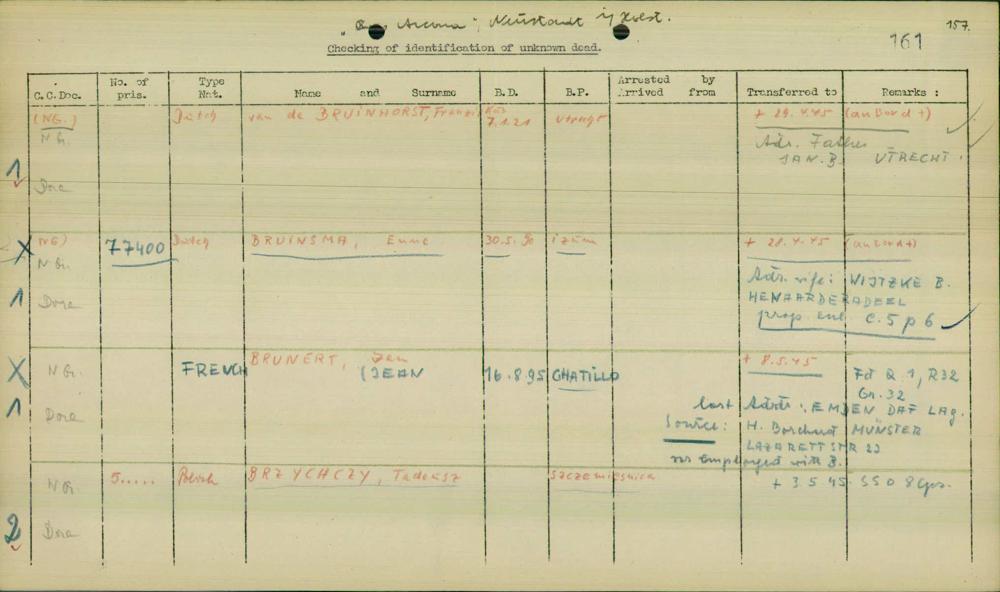 "Cap Arcona", Neustadt i/ Holst. 157.
161
Checking of identification of unknown dead.
C.C.Doc. No. of pris. Type Nat. Name and Surname B.D. B.P. Arrested by Arrived from Transferred to Remarks :
(NG.) Dutch van de BRUINHORST, 7.1.21 Utregt + 29.4.45 (an Bord +)
N G. Adr. Father
JAN. B. UTRECHT.
1 Dora
X NG) 77400 Dutch BRUINSMA, Enne 30.5.90 + 28.4.45 (an Bord +)
N G. Adr. wife: WIJTZKE B.
1 Dora HENAARDERADEEL
prop. enc C.5 p 6
X N G. FRENCH BRUNERT, Jan (JEAN 16.8.95 CHATILLO + 8.5.45 Fd Q 1, R32
Gr. 32
1 Dora last Addr: EMDEN DAF LAG.
Source: H. Borchard MÜNSTER
LAZARETTSTR 23
was employed with B.
N G. 5..... Polish BRZYCHCZY, Tadeusz Szczemiesnica + 3.5.45
2 Dora